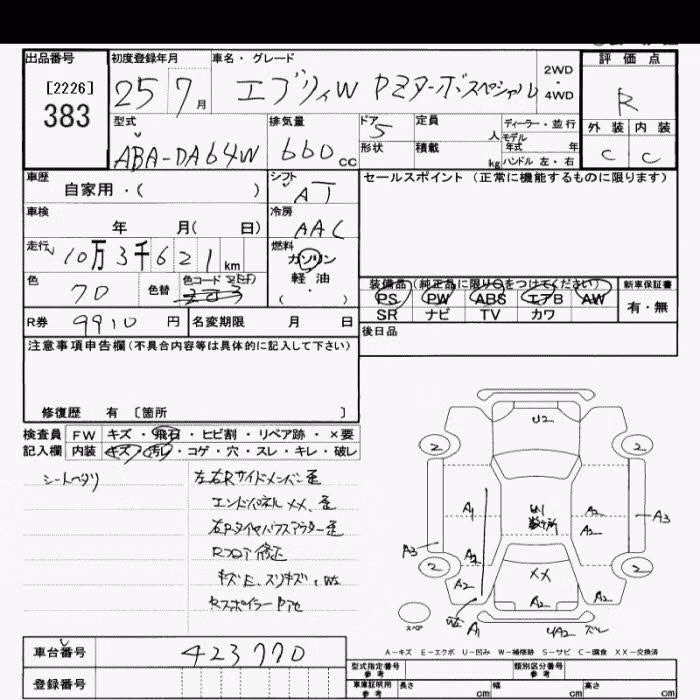 出品番号
[2226]
383
初度登録年月
25 7月
車名・グレード
エブリィW PZターボスペシャル
2WD
・
4WD
評価点
R
外装 内装
C C
型式
ABA-DA64W
排気量
660cc
ドア
5
形状
定員
人
積載
kg
ディーラー・並行
モデル
年式 年
ハンドル 左・右
車歴
自家用・( )
シフト
AT
セールスポイント(正常に機能するものに限ります)
車検
年 月( 日)
冷房
AAC
走行
10万3千621km
燃料
ガソリン
軽油
( ・ )
色
70
色替
色コード
装備品(純正品に限り○をつけてください)
PS PW ABS エアB AW
SR ナビ TV カワ
新車保証書
有・無
R券 9910円
名変期限 月 日
後日品
注意事項申告欄(不具合内容等は具体的に記入して下さい)
修復歴 有 〔箇所 〕
検査員 FW キズ・飛石・ヒビ割・リペア跡・×要
記入欄 内装 キズ・汚レ・コゲ・穴・スレ・キレ・破レ
シートヘタリ
左右Rサイドメンバー歪
エンドパネルXX、歪
右Rタイヤハウスアウター歪
Rフロア修正
キズE、スリキズ、W2
U2
2 2
A1 A2 A3
A2
A3 A2
2 2
XX
A2 A2 A2
A1 4A2 ズレ
スペア
A-キズ E-エクボ U-凹み W-補修跡 S-サビ C-腐食 XX-交換済
車台番号 423770
登録番号
型式指定番号
参考
類別区分番号
参考
車庫証明用
参考
長さ cm 幅 cm 高さ cm